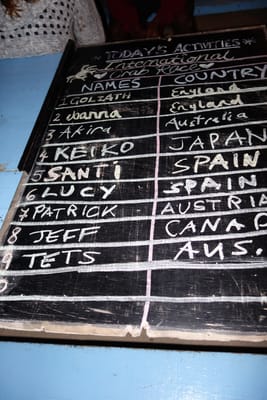 TODAY'S ACTIVITIES
International
Crab Race
NAMES COUNTRY
1 GOLIATH England
2 wanna England
3 Akira Australia
4 KEIKO JAPAN
5 SANTI SPAIN
6 LUCY SPAIN
7 PATRICK AUSTRIA
8 JEFF CANAD
9 TETS AUS.